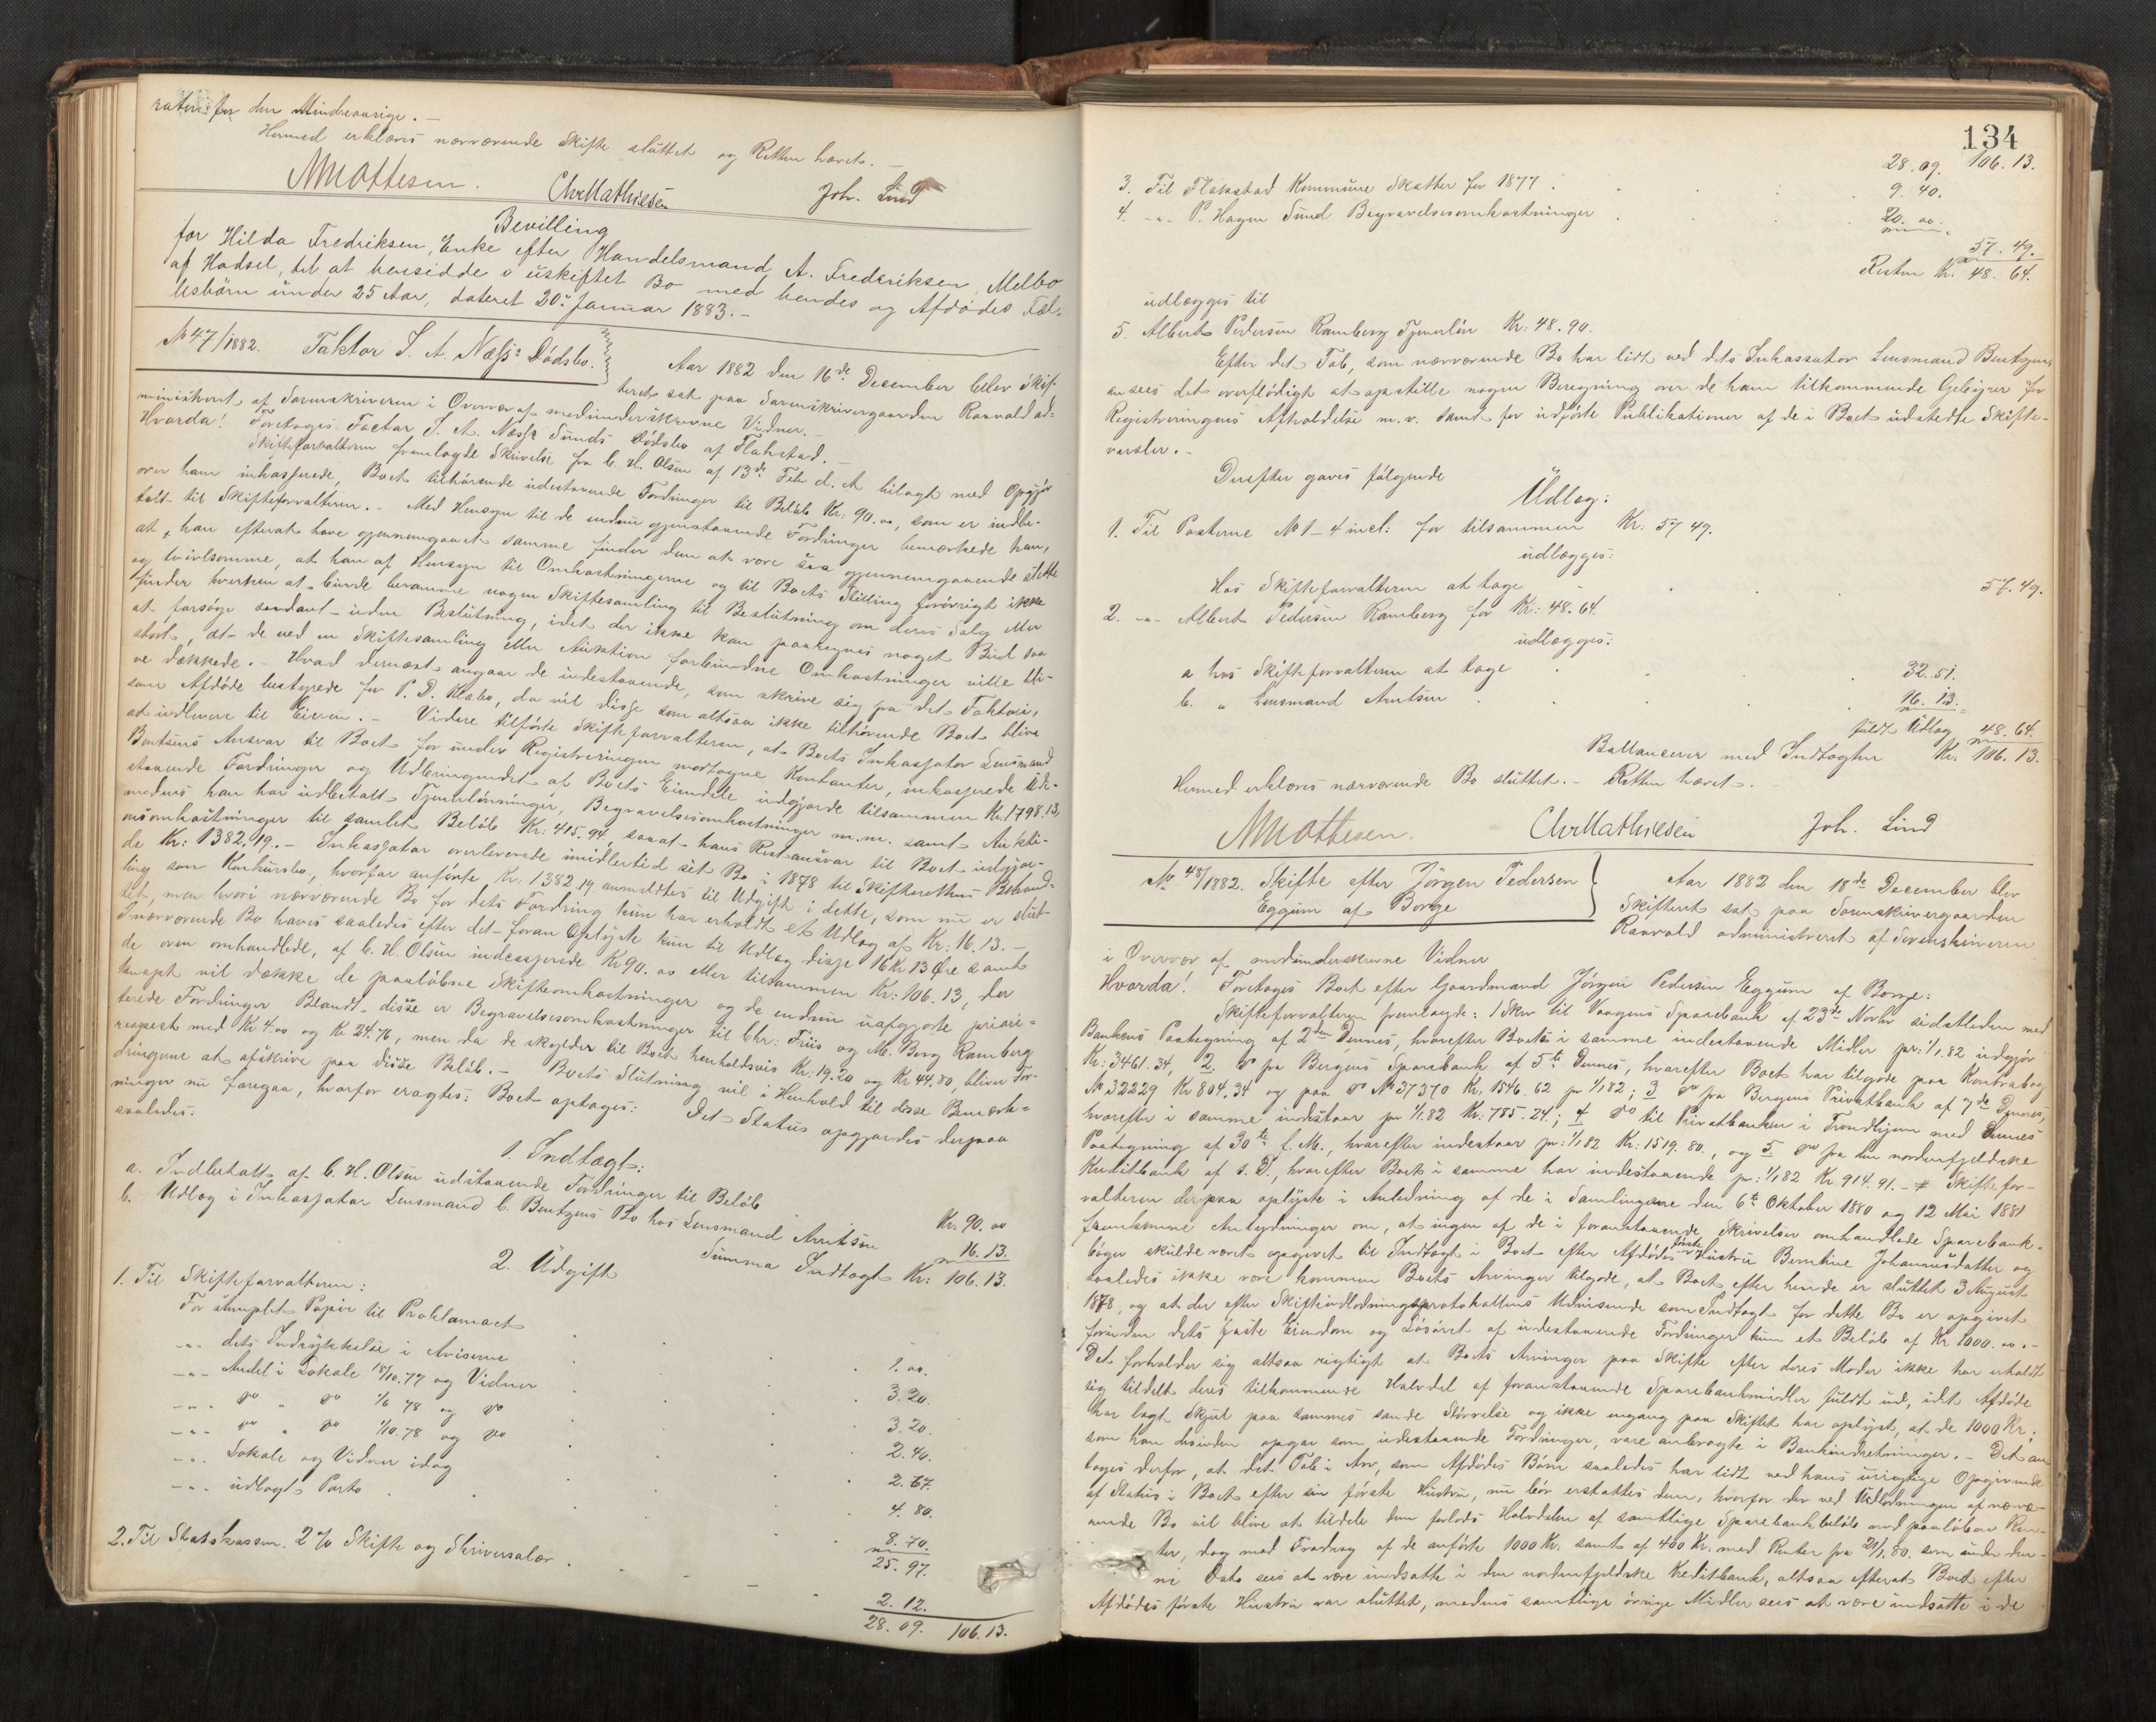 rater for den Mindreaarige. -
Hermed erklæres nærværende Skifte sluttet og Retten hævet. -
MMottesen. Chr Mathiesen Joh. Lind
Bevilling
for Hilda Fredriksen, Enke efter Handelsmand A. Fredriksen, Melbo
af Hadsel, til at hensidde i uskiftet Bo med hendes og Afdødes Fæl-
lesbörn under 25 Aar, dateret 20de Januar 1883. -
No 47/1882. Faktor J. A. Næss's Dödsbo.
Aar 1882 den 16de December blev Skif-
teret sat paa Sorenskrivergaarden Raavold ad-
ministreret af Sorenskriveren i Overvær af medunderskrevne Vidner. -
Hvorda! Foretoges Factor J. A. Næss Sunds Dödsbo af Flakstad. -
Skifteforvalteren fremlagde Skrivelse fra C. H. Olsen af 13de Feb d. A bilagt med Opgjör
over ham inkasserede, Boet tilhörende udestaaende Fordringer til Belöb Kr: 90.00, som er indbe-
talt til Skifteforvalteren. - Med Hensyn til de endnu gjenstaaende Fordringer bemærkede han,
at, han efterat have gjennemgaaet samme finder dem at være saa gjennemgaaende slette
og tvivlsomme, at han af Hensyn til Omkostningerne og til Boets Stilling forövrigt ikke
finder hverken at burde beramme nogen Skiftesamling til Beslutning om deres Salg eller
at forsöge saadant uden Beslutning, idet der ikke kan paaregnes noget Bud saa
stort, at de ved en Skiftesamling eller Auktion forbundne Omkostninger ville bli-
ve dækkede. - Hvad dernæst angaar de udestaaende, som skrive sig fra det Faktori,
som Afdöde bestyrede for P. D. Klæbo, da vil disse som altsaa ikke tilhörende Boet blive
at udlevere til Eieren. - Videre tilförte Skifteforvalteren, at Boets Inkassator Lensmand
Bentzens Ansvar til Boet for under Registreringen modtagne Kontanter, inkasserede Ud-
staaende Fordringer og Udbringendet af Boets Eiendele udgjorde tilsammen Kr. 1798.13,
medens han har udbetalt Tjenerlönninger, Begravelsesomkostninger m.m. samt Aukti-
onsomkostninger til samlet Belöb Kr: 415.94, saaat hans Restansvar til Boet udgjor-
de Kr: 1382.19. - Inkassator overleverede imidlertid sit Bo i 1878 til Skifterettens Behand-
ling som Konkursbo, hvorfor anförte Kr: 1382.19 anmeldtes til Udgift i dette, som nu er slut-
tet, men hvori nærværende Bo for dets Fordring kun har erholdt et Udlæg af Kr: 16.13. -
I nærværende Bo haves saaledes efter det foran Oplyste kun til Udlæg disse 16 Kr 13 Öre samt
de oven omhandlede, af C. H. Olsen indcasserede Kr 90. 00 eller tilsammen Kr: 106.13, der
knapt vil dække de paalöbne Skifteomkostninger og de endnu uafgjorte priori-
terede Fordringer Blandt disse er Begravelsesomkostninger til Chr: Friis og M. Berg Ramberg
respect med Kr 4.00 og Kr 24.76, men da de skylder til Boet henholdsvis Kr: 19.20 og Kr 44.80 bliver For-
dringerne at afskrive paa disse Belöb. - Boets Slutning vil i Henhold til disse Bemærk-
ninger nu foregaa, hvorfor eragtes: Boet optages: Det Status opgjordes derpaa
saaledes:
1. Indtægt:
a. Indbetalt af C. H. Olsen udstaaende Fordringer til Belöb Kr. 90. 00
b. Udlæg i Inkassator Lensmand C. Bentzens Bo hos Lensmand Arntsen 16. 13.
Summa Indtægt Kr: 106. 13.
2. Udgift
1. Til Skifteforvalteren:
For stemplet Papir til Proklamaet 1. 00.
-"- dets Indrykkelse i Aviserne 3. 20.
-"- Andel i Lokale 18/10.77 og Vidner 3. 20.
-"- do " do 1/6 78 og do 2. 40.
-"- do " do 1/10.78 og do 2. 67.
-"- Lokale og Vidner idag 4. 80.
-"- udlagt Porto 8. 70.
25. 97.
2. Til Statskassen. 2 % Skifte og Skriversalær 2. 12.
28. 09. 106. 13.
134
28. 09. 106. 13.
3. Til Flakstad Kommune Skatter for 1877 9. 40.
4. -"- P. Hagen Sund Begravelsesomkostninger 20. 00.
57. 49.
Resten Kr: 48. 64.
udlægges til
5. Albert Pedersen Ramberg Tjenerlön Kr: 48. 90.
Efter det Tab, som nærværende Bo har lidt ved dets Inkassator Lensmand Bentzen,
ansees det overflödigt at opstille nogen Beregning over de ham tilkommende Gebyrer for
Registreringens Afholdelse m.v. samt for udförte Publikationer af de i Boet udstedte Skifte-
varsler. -
Derefter gaves fölgende
Udlæg:
1. Til Posterne No 1 - 4 incl: for tilsammen Kr: 57 49.
udlægges:
Hos Skifteforvalteren at tage 57. 49.
2. -"- Albert Pedersen Ramberg for Kr: 48. 64.
udlægges:
a hos Skifteforvalteren at tage 32. 51.
b. " Lensmand Arntsen 16. 13.
fuldt Udlæg 48. 64.
Ballancerer med Indtægten Kr. 106. 13.
Hermed erklæres nærværende Bo sluttet. - Retten hævet. -
MMottesen. Chr Mathiesen Joh. Lind
No 48/1882. Skifte efter Jörgen Pedersen
Eggum af Borge
Aar 1882 den 18de December blev
Skifteret sat paa Sorenskrivergaarden
Raavold administreret af Sorenskriveren
i Overvær af medunderskrevne Vidner
Hvorda! Foretoges Boet efter Gaardmand Jörgen Pedersen Eggum af Borge:
Skifteforvalteren fremlagde: 1 Skr til Vaagens Sparebank af 23de Novbr sidstleden med
Bankens Paategning af 2den Dennes, hvorefter Boets i samme indestaaende Midler pr: 1/1.82 udgjör
Kr: 3461.34, 2. do fra Bergens Sparebank af 5te Dennes, hvorefter Boet har tilgode paa Kontrabog
No 32229 Kr 804.34 og paa do No 37370 Kr. 1546. 62 pr 1/1 82; 3 do fra Bergens Privatbank af 7de Dennes,
hvorefter i samme indestaar pr 1/1.82 Kr: 785. 24; 4 do til Privatbanken i Trondhjem med Dennes
Paategning af 30te f. M., hvorefter indestaar pr: 1/1 82 Kr: 1519. 80., og 5 do fra den nordenfjeldske
Kreditbank af s. D., hvorefter Boet i samme har indestaaende pr: 1/1 82 Kr 914. 91. - Skiftefor-
valteren derpaa oplyste i Anledning af de i Samlingerne den 6te Oktober 1880 og 12 Mai 1881
fremkomne Antydninger om, at ingen af de i foranstaaende Skrivelser omhandlede Sparebank-
böger skulde været opgivet til Indtægt i Boet efter Afdödes förste Hustru Berntine Johannesdatter og
saaledes ikke være kommen Boets Arvinger tilgode, at Boet efter hende er sluttet 3 August
1878, og at der efter Skifteudlodningsprotokollens Udvisende som Indtægt for dette Bo er opgivet
foruden dets faste Eiendom og Lösöret af udestaaende Fordringer kun et Belöb af Kr 1000. 00. -
Det forholder sig altsaa rigtigt at Boets Arvinger paa Skifte efter deres Moder ikke har erholdt
sig tildelt deres tilkommende Halvdel af foranstaaende Sparebankmidler fuldt ud, idet Afdöde
har lagt Skjul paa sammes sande Störrelse og ikke engang paa Skiftet har oplyst, at de 1000 Kr;
som han desuden opgav som udestaaende Fordringer, vare anbragte i Bankindretninger. - Det an-
tages derfor, at det Tab i Arv, som Afdödes Börn saaledes har lidt ved hans urigtige Opgivende
af Status i Boet efter sin förste Hustru, nu bör erstattes dem, hvorfor der ved Udlodningen af nærvæ-
rende Bo vil blive at tildele dem forlods Halvdelen af samtlige Sparebankbelöb med paalöbne Ren-
ter, dog med Fradrag af de anförte 1000 Kr. samt af 400 Kr: med Renter fra 21/1.80. som under den-
ne Dato sees at være indsatte i den nordenfjeldske Kreditbank, altsaa efterat Boet efter
Afdödes förste Hustru var sluttet, medens samtlige övrige Midler sees at være indsatte i de